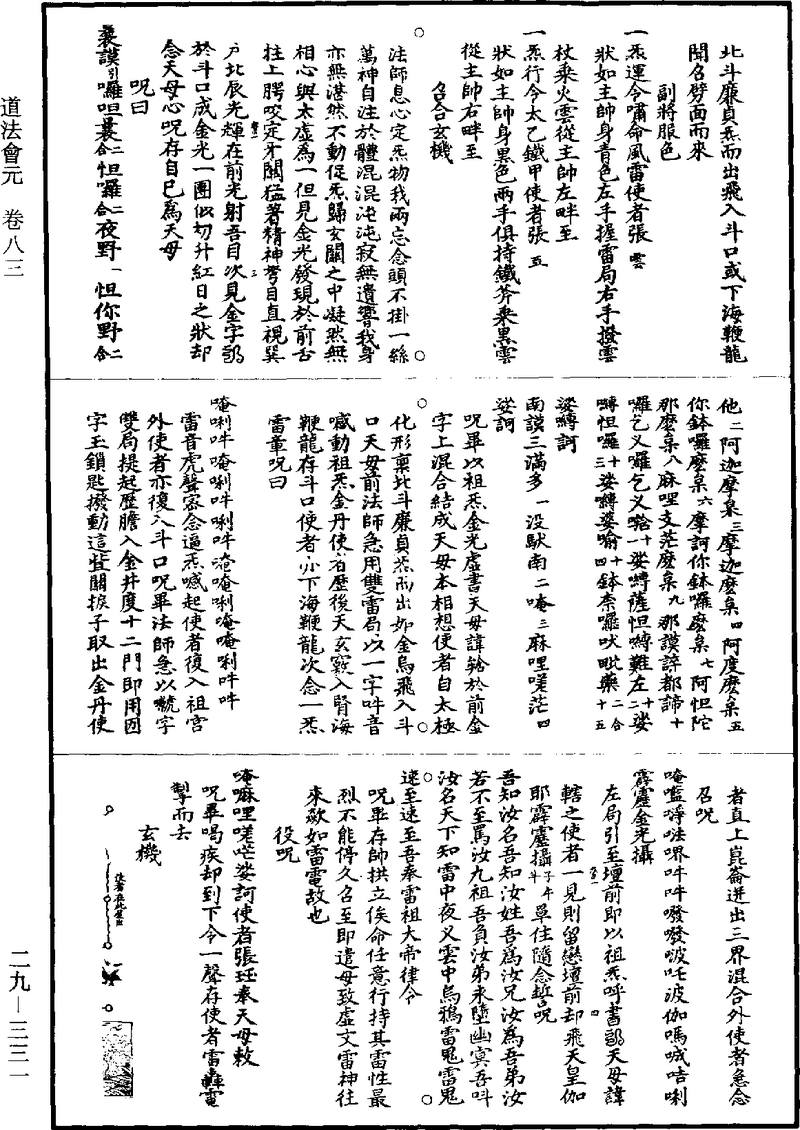 道法會元　卷八三
二九—三三一
北斗廉貞炁而出飛入斗口或下海鞭龍
聞名劈面而來
副將服色
一炁運令嘯命風雷使者張雲
狀如主帥身青色左手握雷局右手撥雲
杖乘火雲從主帥左畔至
一炁行令太乙鐵甲使者張五
狀如主帥身黑色兩手俱持鐵斧乘黑雲
從主帥右畔至
召合玄機
法師息心定炁物我兩忘念頭不掛一絲
萬神自注於體混混沌沌寂無遺響我身
亦無湛然不動促炁歸玄關之中凝然無
相心與太虛為一但見金光發現於前舌
拄上腭咬定牙關猛著精神弩目直視巽
戶北辰光輝在前光射吾目次見金字
於斗口成金光一團似初升紅日之狀却
念天母心呪存自己為天母
呪曰
曩謨引囉呾曩二合怛囉二合夜野一怛你野二合
他二阿迦摩枲三摩迦麽枲四阿度麽枲五
你鉢囉麽枲六摩訶你鉢囉麽枲七阿怛陀
那麽枲八麻哩支茫麽枲九那謨諄都諦十
囉乞义囉乞义𤚥十一娑嚩薩怛嚩難左二十娑
嚩怛囉三十娑嚩婆喻四十鉢柰囉吠毗藥二合十五
娑嚩訶
南謨三滿多一没馱南二唵三麻哩嗟茫四
娑訶
呪畢以祖炁金光虛書天母諱𤚥於前金
字上混合結成天母本相想使者自太極
化形稟北斗廉貞炁而出如金烏飛入斗
口天母前法師急用雙雷局以一字吽音
喊動祖炁金丹使者歷後天玄竅入腎海
鞭龍存斗口使者亦下海鞭龍次念一炁
雷章呪曰
唵唎吽唵唎吽唎吽唵唵唎唵唵唎吽吽
雷音虎聲密念逼炁喊起使者復入祖宮
外使者亦復入斗口呪畢法師急以號字
雙局提起歷膽入金井度十二門即用因
字玉鎖匙撥動這些關捩子取出金丹使
者直上崑崙迸出三界混合外使者急念
召呪
唵㘕𠷑㖶㗌吽吽嘙嘙㖳吒波伽嗎㖅咭唎
霹靂金光攝
左局引至壇前即以祖炁呼書天母諱
轄之使者一見則留戀壇前却飛天皇伽
耶霹靂攝子午斗單住隨念誓呪
吾知汝名吾知汝姓吾為汝兄汝為吾弟汝
若不至罵汝九祖吾負汝弟永墮幽冥吾呌
汝名天下知雷中夜义雲中烏鴉雷鬼雷鬼
速至速至吾奉雷祖大帝律令
呪畢存帥拱立俟命任意行持其雷性最
烈不能停久召至即遣毋致虛文雷神往
來歘如雷電故也
役呪
唵嘛哩嗟茫娑訶使者張珏奉天母敕
呪畢喝疾却到下令一聲存使者雷轟電
掣而去
玄機
使者在此發出